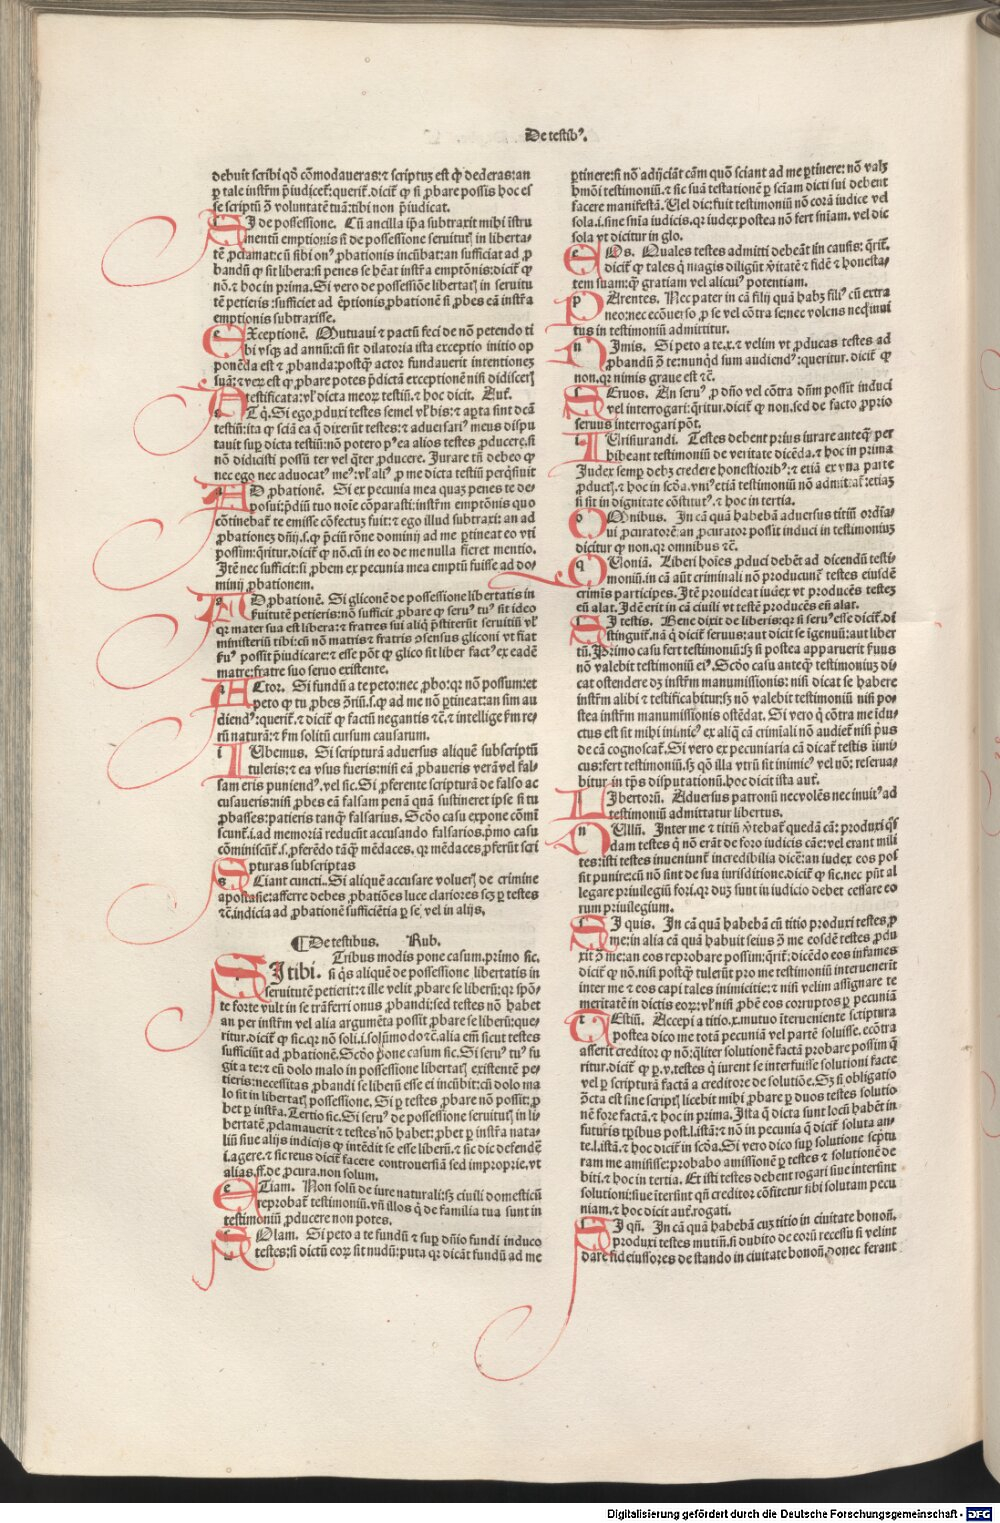 De testibꝰ.
debuit scribi qō cōmodaueras: ⁊ scriptuꝫ est ꝙ dederas: an
ꝑ tale instr̄m p̄iudicet᷑: querit᷑. dicit᷑ ꝙ si ꝓbare possis hoc es
se scriptū ꝯ̄ voluntatē tuā: tibi non p̄iudicat.
SI de possessione. Cū ancilla ip̄a subtraxit mihi īstru
mentū emptionis si de possessione seruitutꝭ in liberta⸗
tē ꝓclamat: cū sibi onꝰ ꝓbationis incūbat: an sufficiat ad ꝓ
bandū ꝙ sit libera: si penes se hēat instr̄a emptōnis: dicit᷑ ꝙ
nō. ⁊ hoc in prima. Si vero de possessiōe libertatꝭ in seruitu
tē petieris: sufficiet ad ēptionis ꝓbationē si ꝓbes eā instr̄a
emptionis subtraxisse.
EXceptionē. Mutuaui ⁊ pactū feci de nō petendo ti
bi vsqꝫ ad annū: cū sit dilatoria ista exceptio initio op
ponēda est ⁊ ꝓbanda: postꝙ̄ actor fundauerit intentioneꝫ
suā: ⁊ veꝝ est ꝙ ꝓbare potes p̄dictā exceptionē nisi didiscerꝭ
testificata: vl̓ dicta meoꝝ testiū. ⁊ hoc dicit. Aut̄.
AT q̄. Si ego ꝓduxi testes semel vl̓ bis: ⁊ aꝑta sint dcā
testiū: ita ꝙ sciā ea q̄ dixerūt testes: ⁊ aduersariꝰ meus dispu
tauit suꝑ dicta testiū: nō potero pꝰea alios testes ꝓducere. si
nō didicisti possū ter vel q̄ter ꝓducere. Jurare tn̄ debeo ꝙ
nec ego nec aduocatꝰ meꝰ: vl̓ aliꝰ ꝓ me dicta testiū perq̄siuit
AD ꝓbationē. Si ex pecunia mea quaꝫ penes te de⸗
posui: p̄diū tuo noīe cōparasti: instr̄m emptōnis quo
cōtinebat᷑ te emisse cōfectuꝫ fuit: ⁊ ego illud subtraxi: an ad
ꝓbationeꝫ dn̄ij. s. ꝙ p̄ciū rōne dominij ad me ꝑtineat eo vti
possim: q̄ritur. dicit᷑ ꝙ nō. cū in eo de me nulla fieret mentio.
Itē nec sufficit: si ꝓbem ex pecunia mea emptū fuisse ad do⸗
minij ꝓbationem.
AD ꝓbationē. Si gliconē de possessione libertatis in
ẜuitutē petieris: nō sufficit ꝓbare ꝙ seruꝰ tuꝰ sit ideo
qꝛ mater sua est libera: ⁊ fratres sui aliqꝭ p̄stiterūt seruitiū vl̓
ministeriū tibi: cū nō matris ⁊ fratris ꝯsensus gliconi vt fiat
ẜuꝰ possit p̄iudicare: ⁊ esse pōt ꝙ glico sit liber factꝰ ex eadē
matre: fratre suo seruo existente.
ACtor. Si fundū a te peto: nec ꝓbo: qꝛ nō possum: et
peto ꝙ tu ꝓbes ꝯ̄riū. s. ꝙ ad me nō ꝑtineat: an sim au
diendꝰ: querit᷑. ⁊ dicit᷑ ꝙ factū negantis ⁊c̄. ⁊ intellige ẜm re⸗
rū naturā: ⁊ ẜm solitū cursum causarum.
IVbemus. Si scripturā aduersus aliquē subscriptū
tuleris: ⁊ ea vsus fueris: nisi eā ꝓbaueris verā vel fal⸗
sam eris puniendꝰ. vel sic. Si ꝓferente scripturā de falso ac
cusaueris: nisi ꝓbes eā falsam penā quā sustineret ipse si tu
ꝓbasses: patieris tanꝙ̄ falsarius. Scḋo casu expone cōmī
scunt᷑. i. ad memoriā reducūt accusando falsarios. p̄mo casu
cōminiscunt᷑. s. ꝓferēdo tāꝙ̄ mēdaces. qꝛ mēdaces ꝓferūt scri
pturas subscriptas
SCiant cuncti.. Si aliquē accusare voluerꝭ de crimine
apostasie: afferre debes ꝓbatiōes luce clariores scꝫ ꝑ testes
⁊c̄. indicia ad ꝓbationē sufficiētia ꝑ se, vel in alijs.
¶De testibus. Rub.
Tribus modis pone casum. primo sic.
SI tibi. si q̄s aliquē de possessione libertatis in
seruitutē petierit: ⁊ ille velit ꝓbare se liberū: qꝛ spō⸗
te forte vult in se trāsferri onus ꝓbandi: sed testes nō habet
an per instr̄m vel alia argumēta possit ꝓbare se liberū: que⸗
ritur. dicit᷑ ꝙ sic. qꝛ nō soli. i. solūmodo ⁊c̄. alia em̄ sicut testes
sufficiūt ad ꝓbationē. Scḋo p̄one casum sic. Si seruꝰ tuꝰ fu
git a te: ⁊ eū dolo malo in possessione libertatꝭ existentē pe⸗
tieris: necessitas ꝓbandi se liberū esse ei incūbit: cū dolo ma
lo sit in libertatꝭ possessione. Si ꝑ testes ꝓbare nō possit: ꝓ
bet ꝑ instr̄a. Tertio sic. Si seruꝰ de possessione seruitutꝭ in li⸗
bertatē ꝓclamauerit ⁊ testes nō habet: ꝓbet ꝑ instr̄a nata⸗
liū siue alijs indicijs ꝙ intēdit se esse liberū. ⁊ sic dic defendē
i. agere. ⁊ sic reus dicit᷑ facere controuersiā sed improprie. vt
alias. ff. de ꝓcura. non solum.
ETiam. Non solū de iure naturali: sꝫ ciuili domesticū
reprobat᷑ testimoniū. vn̄ illos q̄ de familia tua sunt in
testimoniū ꝓducere non potes.
SOlam. Si peto a te fundū ⁊ suꝑ dn̄io fundi induco
testes: si dictū eoꝝ sit nudū: puta qꝛ dicāt fundū ad me
ꝑtinere: si nō adijciāt cām quō sciant ad me ꝑtinere: nō valꝫ
hmōi testimoniū. ⁊ sic suā testationē ꝑ sciam dicti sui debent
facere manifestā. Uel dic: fuit testimoniū nō corā iudice vel
sola. i. sine sn̄ia iudicis. qꝛ iudex postea nō fert sn̄iam. vel dic
sola vt dicitur in glo.
EOs. Quales testes admitti debeāt in causis: q̄rit᷑.
dicit᷑ ꝙ tales q̄ magis diligūt v̓itatē ⁊ fidē ⁊ honesta⸗
tem suam: ꝙ̄ gratiam vel alicuiꝰ potentiam.
PArentes. Nec pater in cā filij quā habꝫ filiꝰ cū extra
neo: nec ecōuerso ꝓ se vel cōtra se: nec volens neqꝫ inui
tus in testimoniū admittitur.
NImis. Si peto a te .x. ⁊ velim vt ꝓducas testes ad
ꝓbandū ꝯ̄ te: nunq̄d sum audiendꝰ: queritur. dicit᷑ ꝙ
non. qꝛ nimis graue est ⁊c̄.
SEruos. An seruꝰ ꝓ dn̄o vel cōtra dn̄m possit induci
vel interrogari: q̄ritur. dicit᷑ ꝙ non. sed de facto ꝓprio
seruus interrogari pōt.
IVrisiurandi. Testes debent prius iurare anteꝙ̄ per
hibeant testimoniū de veritate dicēda. ⁊ hoc in prima
Judex semꝑ debꝫ credere honestioribꝰ: ⁊ etiā ex vna parte
ꝓductꝭ. ⁊ hoc in scḋa. vniꝰ etiā testimoniū nō admit̄tat᷑: etiaꝫ
si sit in dignitate cōstitutꝰ. ⁊ hoc in tertia.
OMnibus. In cā quā habebā aduersus titiū ordīa⸗
ui ꝓcuratorē: an ꝓcurator possit induci in testimoniuꝫ
dicitur ꝙ non. qꝛ omnibus ⁊c̄.
QUoniā. Liberi hoīes ꝓduci debēt ad dicendū testi⸗
moniū. in cā aūt criminali nō producunt᷑ testes eiusdē
crimīs participes. Itē prouideat iudex vt producēs testeꝫ
eū alat. Idē erit in cā ciuili vt testē producēs eū alat.
SI testis. Bene dixit de liberis: qꝛ si seruꝰ esse dicit᷑. di
stinguit᷑. nā q̄ dicit᷑ seruus: aut dicit se īgenuū: aut liber
tū. Primo casu fert testimoniū: sꝫ si postea apparuerit ẜuus
nō valebit testimoniū eiꝰ. Scḋo casu anteꝙ̄ testimoniuꝫ di
cat ostendere dꝫ instr̄m manumissionis: nisi dicat se habere
instr̄m alibi ⁊ testificabitur: sꝫ nō valebit testimoniū nisi po⸗
stea instr̄m manumissionis ostēdat. Si vero q̄ cōtra me īdu⸗
ctus est sit mihi inimicꝰ ex aliq̄ cā crimīali nō audiet᷑ nisi p̄us
de cā cognoscat᷑. Si vero ex pecuniaria cā dicat᷑ testis inimi⸗
cus: fert testimoniū. sꝫ qō illa vtrū sit inimicꝰ vel nō: reserua⸗
bitur in tp̄s disputationū. hoc dicit ista aut̄.
LIbertorū. Aduersus patronū nec volēs nec inuitꝰ ad
testimoniū admittatur libertus.
NUllū. Inter me ⁊ titiū v̓tebat᷑ quedā cā: produxi q̄s
dam testes q̄ nō erāt de foro iudicis cāe: vel erant mili
tes: isti testes inueniunt᷑ incredibilia dicē: an iudex eos pos
sit punire: cū nō sint de sua iurisditione. dicit᷑ ꝙ sic. nec pn̄t al
legare priuilegiū fori. qꝛ duꝫ sunt in iudicio debet cessare eo
rum priuilegium.
SI quis. In cā quā habebā cū titio produxi testes ꝓ
me: in alia cā quā habuit seius ꝯ̄ me eosdē testes ꝓdu
xit ꝯ̄ me: an eos reprobare possim: q̄rit᷑: dicēdo eos infames
dicit᷑ ꝙ nō. nisi postꝙ̄ tulerūt pro me testimoniū interuenerit
inter me ⁊ eos capitales inimicitie: ⁊ nisi velim assignare te
meritatē in dictis eoꝝ: vl̓ nisi ꝓbē eos corruptos ꝑ pecuniā
TEstiū. Accepi a titio .x. mutuo īterueniente scriptura
postea dico me totā pecuniā vel partē soluisse. ecōtra
asserit creditor ꝙ nō: q̄liter solutionē factā probare possim q̄
ritur. dicit᷑ ꝙ ꝑ .v. testes q̄ iurent se interfuisse solutioni facte
vel ꝑ scripturā factā a creditore de solutiōe. Sꝫ si obligatio
ꝯtracta est sine scriptꝭ licebit mihi ꝓbare ꝑ duos testes solutio
nē fore factā. ⁊ hoc in prima. Ista q̄ dicta sunt locū habēt in
futuris tꝑibus post .l. istā: ⁊ nō in pecunia q̄ dicit᷑ soluta an⸗
te .l. istā. ⁊ hoc dicit᷑ in scḋa. Si vero dico suꝑ solutione scp̄tu
ram me amisisse: probabo amissionē ꝑ testes ⁊ solutionē de
biti. ⁊ hoc in tertia. Et isti testes debent rogari siue intersint
solutioni: siue itersint qn̄ creditor cōfitetur sibi solutam pecu
niam. ⁊ hoc dicit aut̄. rogati.
SI qn̄. In cā quā habebā cuꝫ titio in ciuitate bonoñ.
produxi testes mutinē. si dubito de eorū recessu si velint
dare fideiussores de stando in ciuitate bonoñ. donec ferant
Digitalisierung gefördert durch die Deutsche Forschungsgemeinschaft - DFG